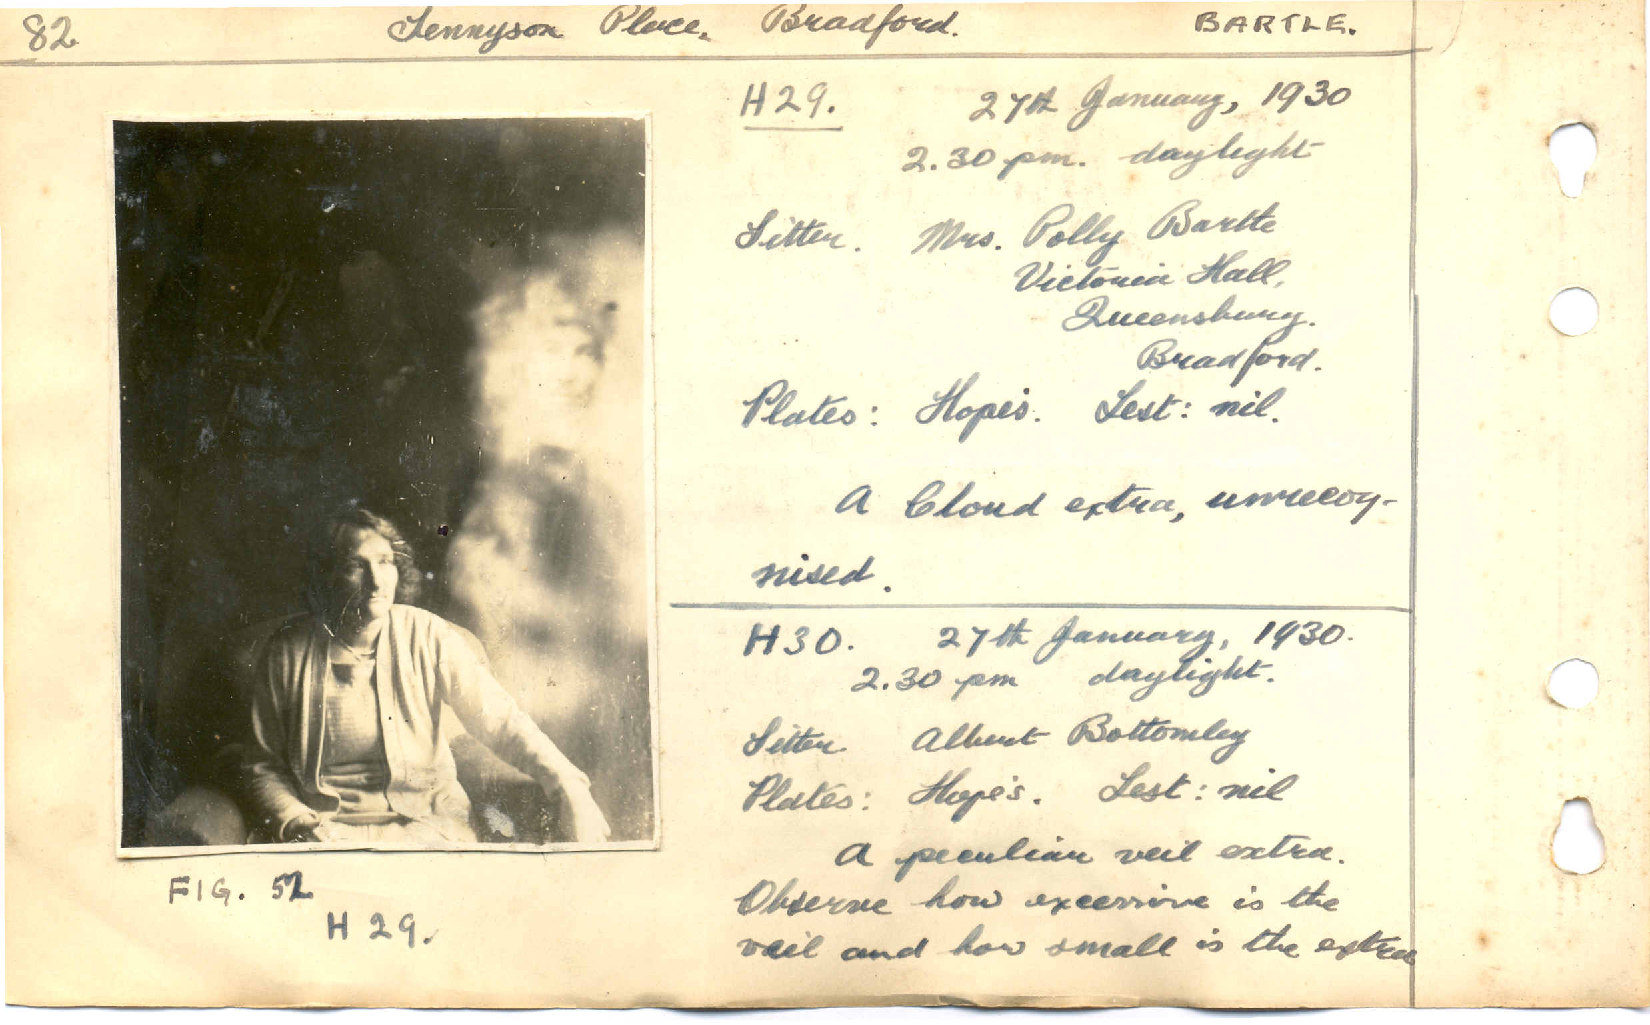 82 Tennyson Place, Bradford. BARTLE.
H29. 27th January, 1930
2.30 pm. daylight
Sitter. Mrs. Polly Bartle
Victoria Hall,
Queensbury.
Bradford.
Plates: Hope's. Test: nil.
A Cloud extra, unrecog-
nised.
H30. 27th January, 1930.
2.30 pm daylight.
Sitter Albert Bottomley
Plates: Hope's. Test: nil
A peculiar veil extra.
Observe how excessive is the
veil and how small is the extra
FIG. 52
H 29.